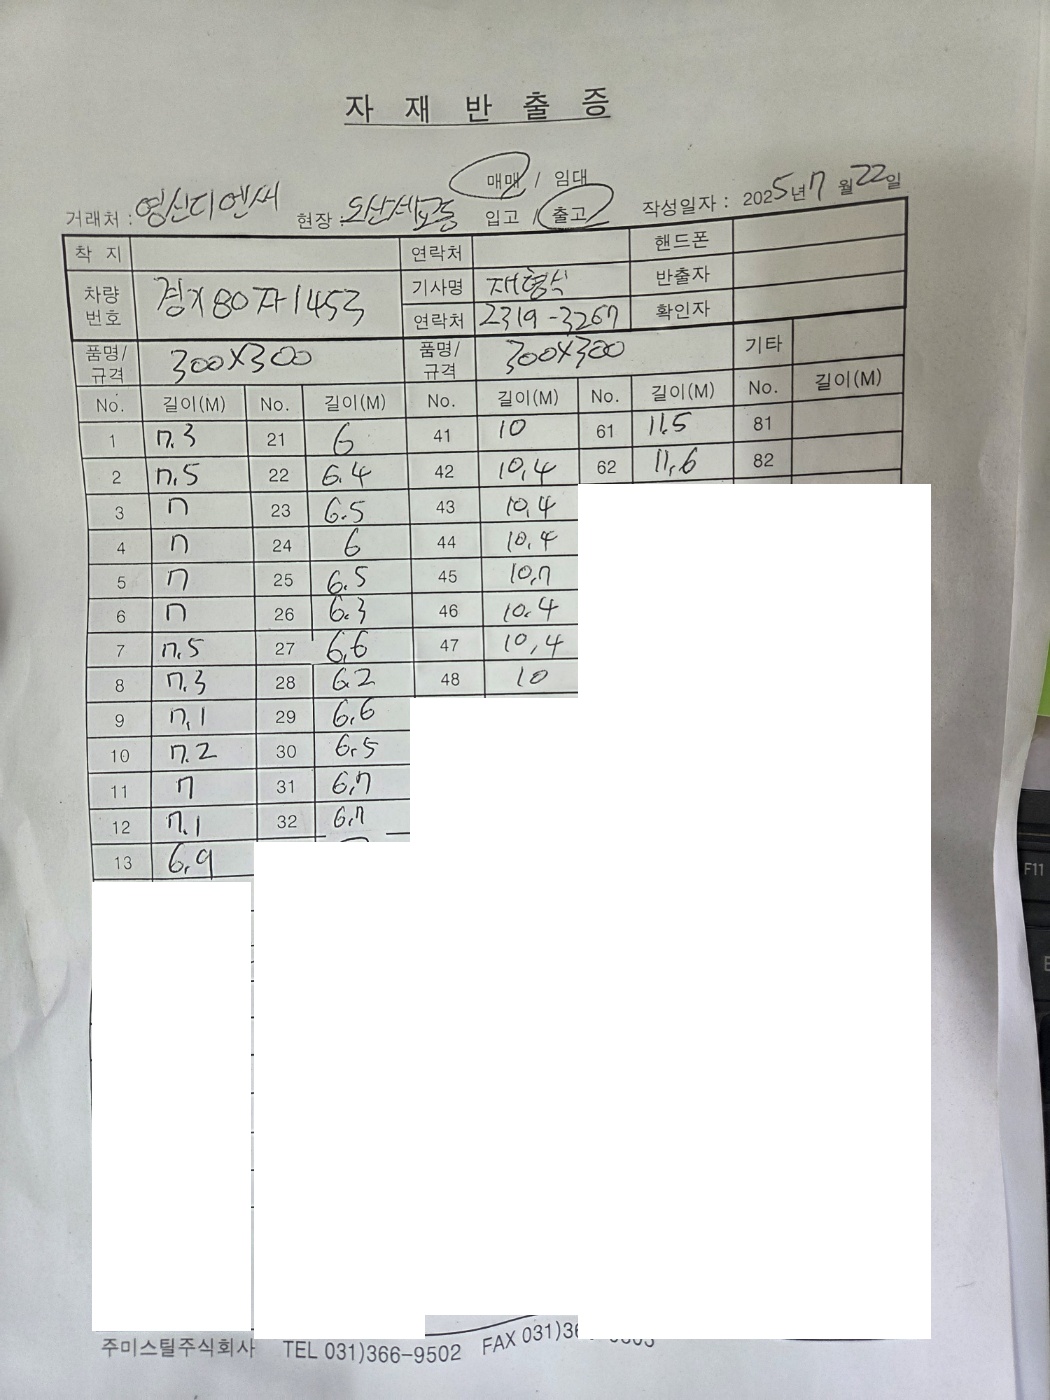 자 재 반 출 증
매매 / 임대
거래처 : 영신디엔씨 현장 : 오산세교동 입고 / 출고 작성일자 : 2025년 7월 22일
착 지 연락처 핸드폰
차량 번호 경기80자1453 기사명 반출자
연락처 2319-3267 확인자
품명/규격 300X300 품명/규격 300X300 기타
No. 길이(M) No. 길이(M) No. 길이(M) No. 길이(M) No. 길이(M)
1 7.3 21 6 41 10 61 11.5 81
2 7.5 22 6.4 42 10.4 62 11.6 82
3 7 23 6.5 43 10.4
4 7 24 6 44 10.4
5 7 25 6.5 45 10.7
6 7 26 6.3 46 10.4
7 7.5 27 6.6 47 10.4
8 7.3 28 6.2 48 10
9 7.1 29 6.6
10 7.2 30 6.5
11 7 31 6.7
12 7.1 32 6.7
13 6.9
주미스틸주식회사 TEL 031)366-9502 FAX 031)36
F11